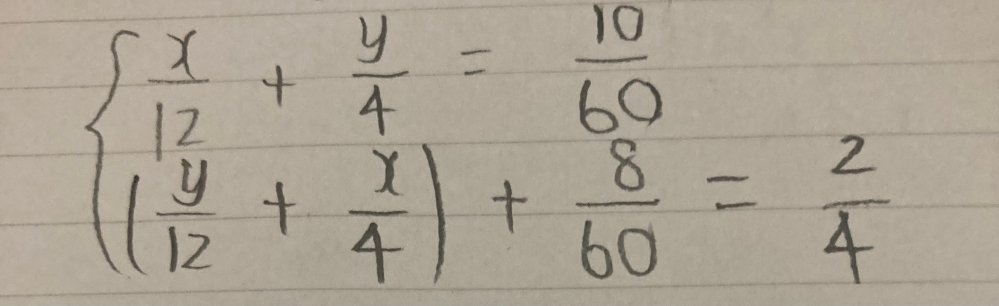 x/12 + y/4 = 10/60
(y/12 + x/4) + 8/60 = 2/4